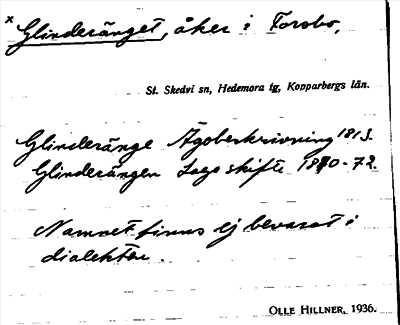 x Glinderänget, åker i Forsbo,
St. Skedvi sn, Hedemora tg, Kopparbergs län.
Glinderänge Ägobeskrivning 1813.
Glinderängen Laga skifte 1870-72.
Namnet finns ej bevarat i
dialekten.
OLLE HILLNER, 1936.